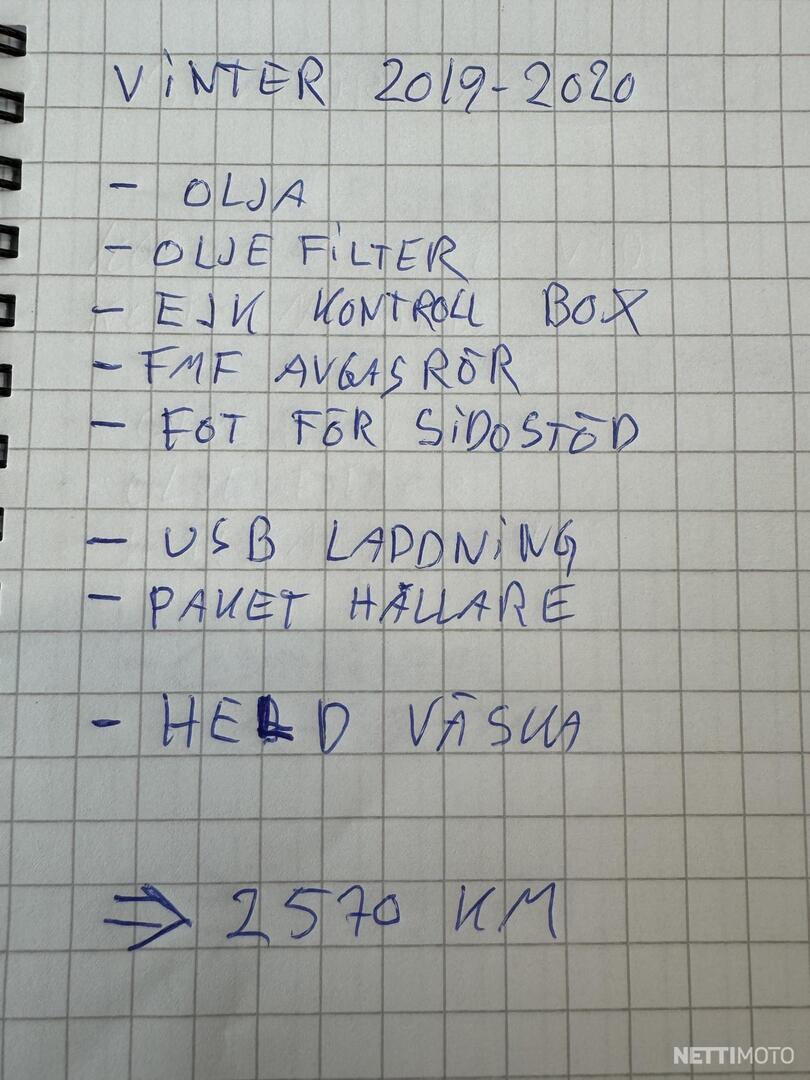 VINTER 2019-2020
- OLJA
- OLJE FILTER
- EJK KONTROLL BOX
- FMF AVGASRÖR
- FOT FÖR SIDOSTÖD
- USB LADDNING
- PAKET HÅLLARE
- HELD VÄSKA
⇒ 2570 KM
NETTIMOTO